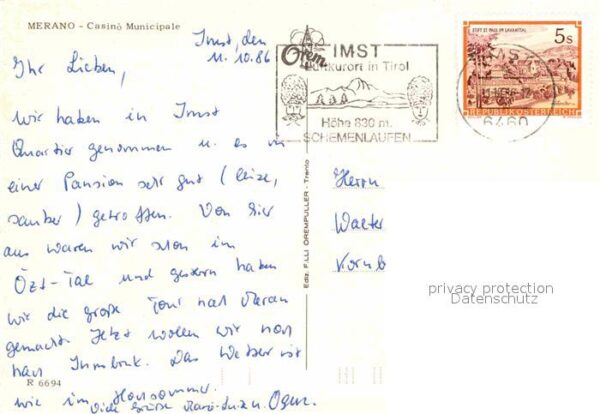 MERANO - Casinò Municipale
Imst, den
11.10.86
Ihr Lieben,
wir haben in Imst
Quartier genommen u. es in
einer Pension sehr gut (leise,
sauber) getroffen. Von hier
aus waren wir schon im
Özt-Tal und gestern haben
wir die große Tour nach Meran
gemacht. Jetzt wollen wir noch
nach Innsbruck. Das Wetter ist
wie im Hochsommer.
Viele Grüße u. Ogur.
R 6694
Ediz. F.LLI OREMPULLER - Trento
Orem
IMST
Luftkurort in Tirol
Höhe 830 m.
SCHEMENLAUFEN
STIFT ST. PAUL IM LAVANTTAL
5s
REPUBLIK ÖSTERREICH
6460
Herrn
Walter
Kornb
privacy protection
Datenschutz